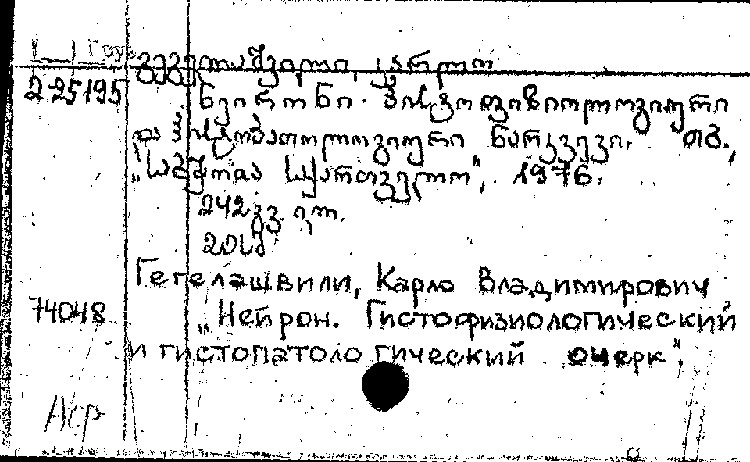 Груз
გეგელაშვილი, კარლო
2-25195
ნეირონი. ჰისტოფიზიოლოგიური
და ჰისტოპათოლოგიური ნარკვევი. თბ.,
„საბჭოთა საქართველო", 1976.
242 გვ.
Гегелашвили, Карло Владимирович
74048
„Нейрон. Гистофизиологический
и гистопатологический очерк".